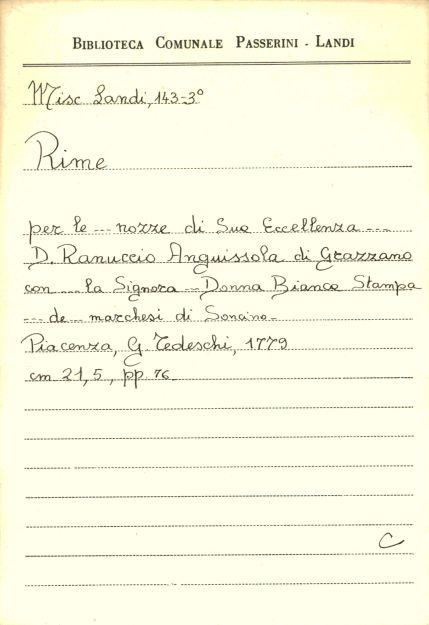 BIBLIOTECA COMUNALE PASSERINI - LANDI
Misc Landi, 143-3°
Rime
per le --- nozze di Sua Eccellenza ---
D. Ranuccio Anguissola di Grazzano
con --- la Signora --- Donna Bianca Stampa
--- de --- marchesi di Soncino -
Piacenza, G. Tedeschi, 1779
cm 21,5, pp. 76
C